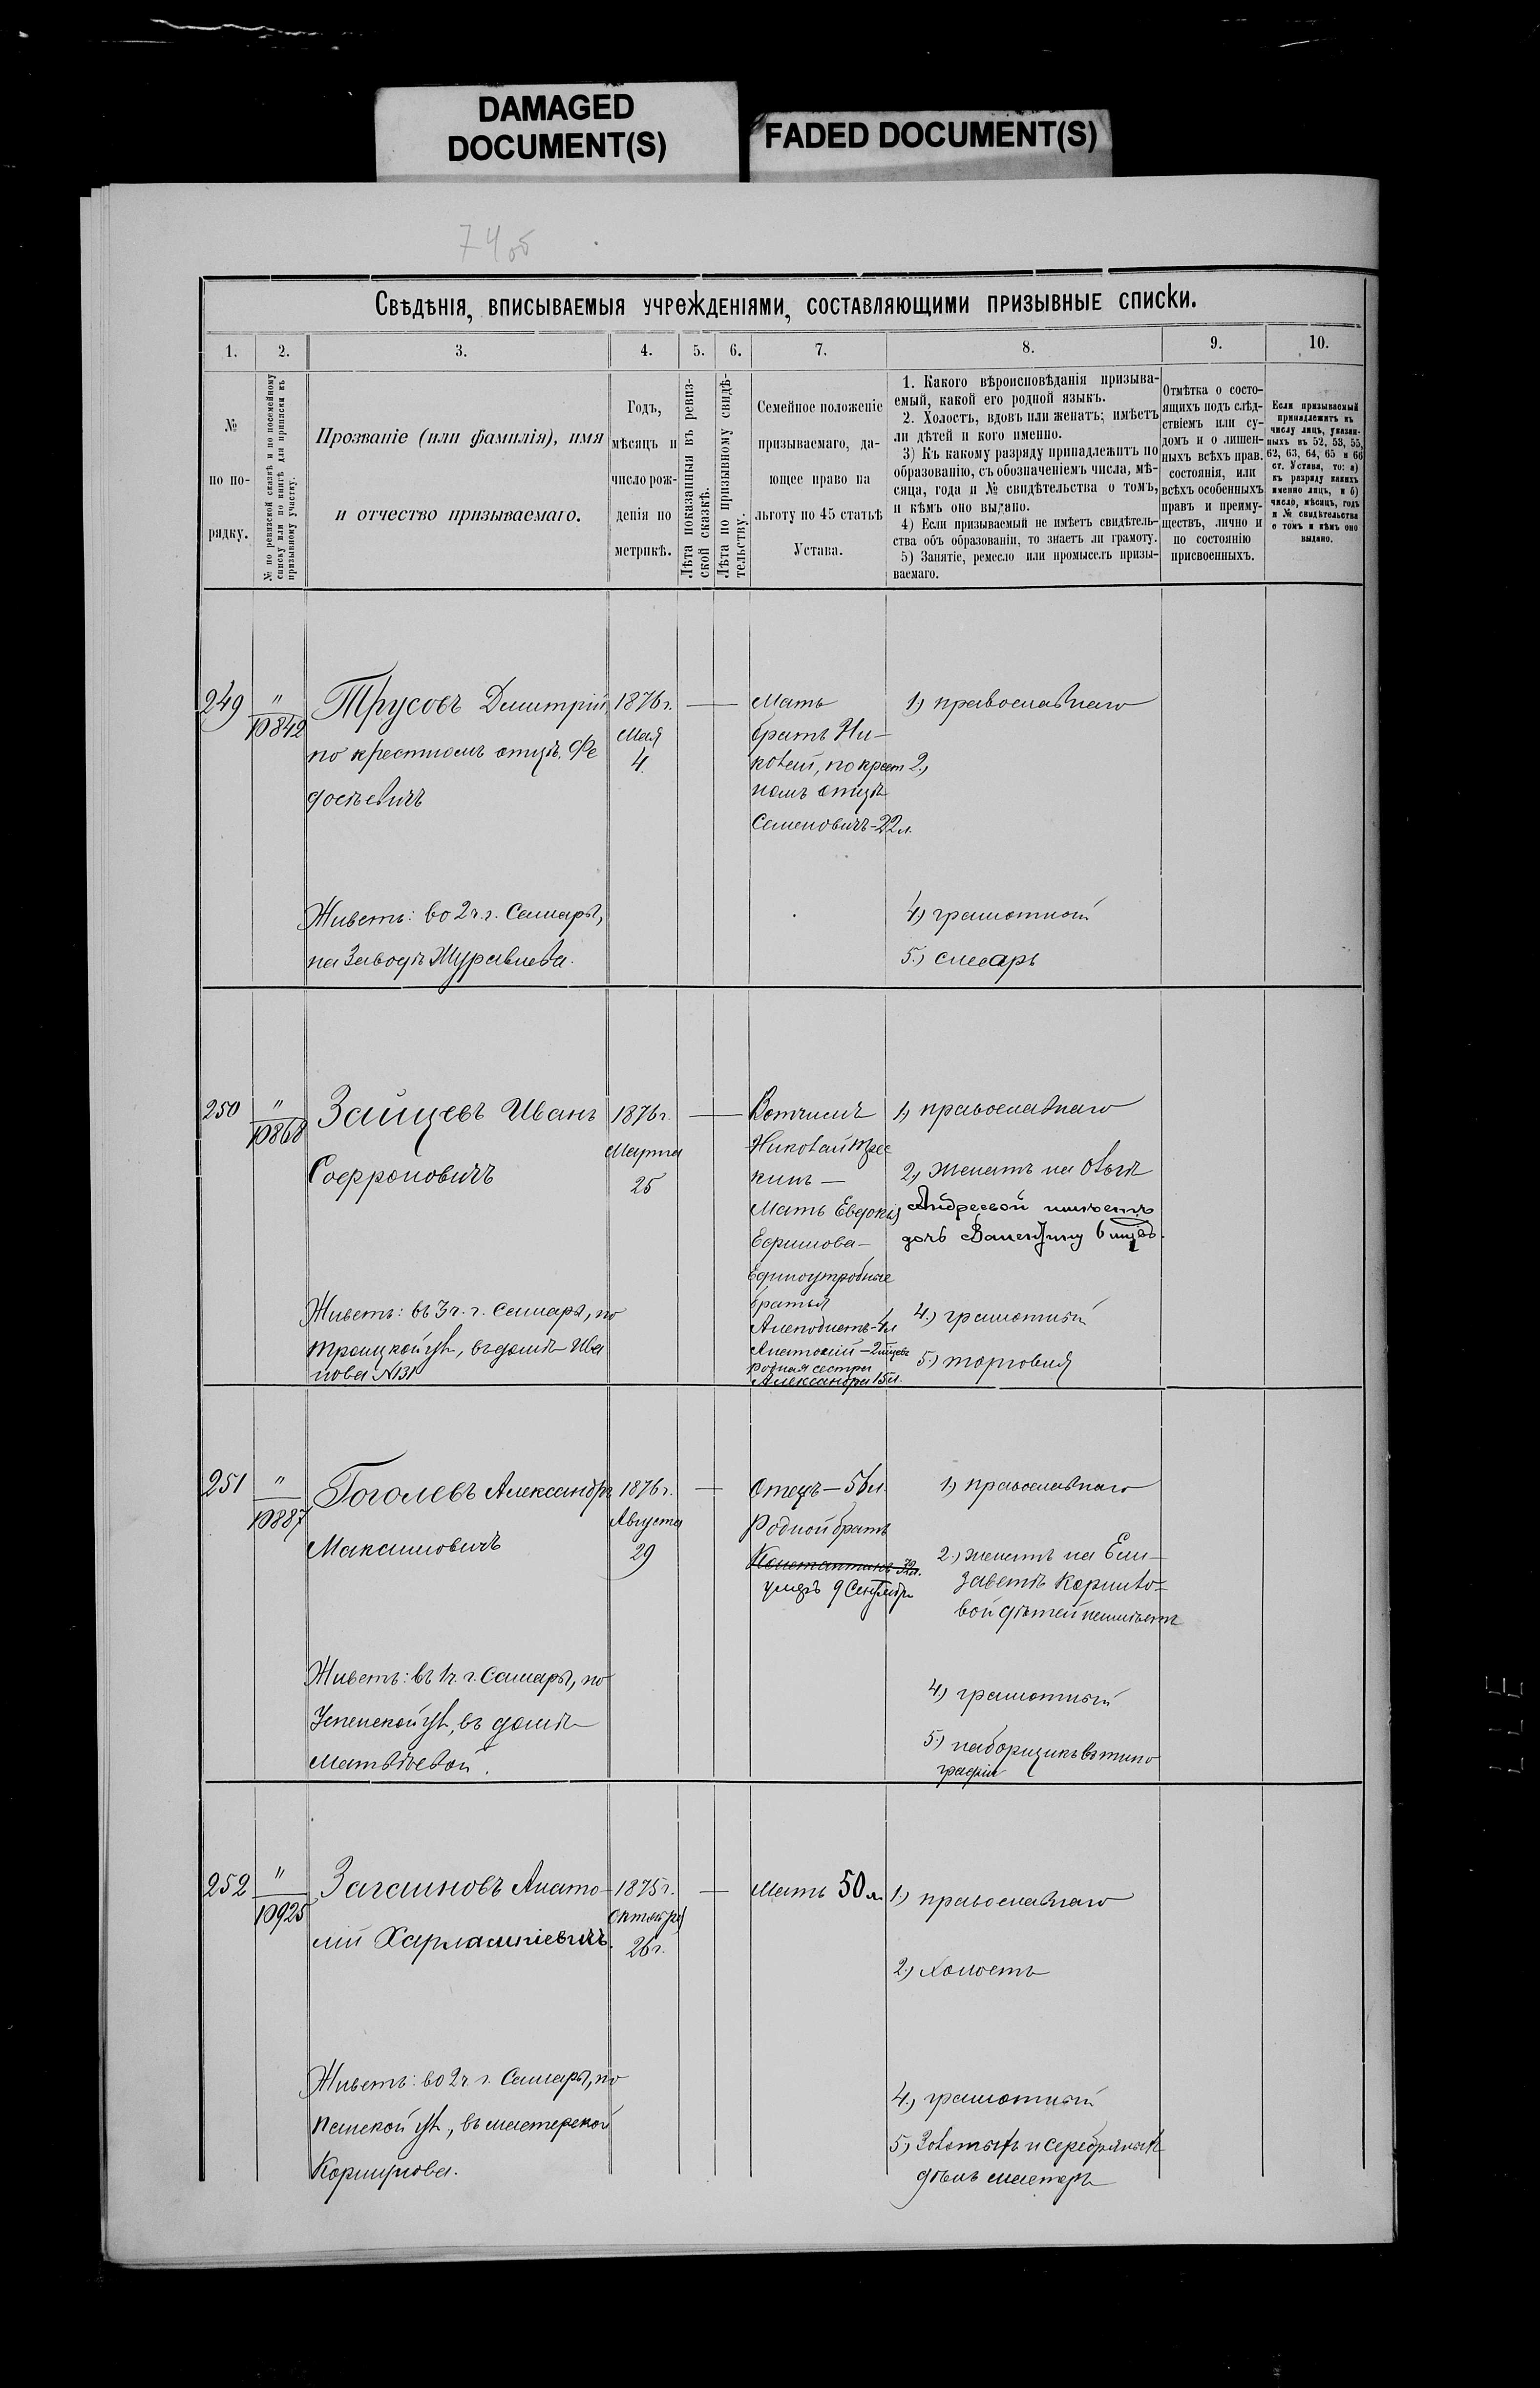 DAMAGED
DOCUMENT(S)
FADED DOCUMENT(S)
74об
Свѣдѣнія, вписываемыя учрежденіями, составляющими призывные списки.
1.
2.
3.
4.
5.
6.
7.
8.
9.
10.
№
по по-
рядку.
№ по ревизской сказкѣ и по посемейному
списку или по книгѣ для приписки къ
призывному участку.
Прозваніе (или фамилія), имя
и отчество призываемаго.
Годъ,
мѣсяцъ и
число рож-
денія по
метрикѣ.
Лѣта показанныя въ ревиз-
ской сказкѣ.
Лѣта по призывному свидѣ-
тельству.
Семейное положеніе
призываемаго, да-
ющее право на
льготу по 45 статьѣ
Устава.
1. Какого вѣроисповѣданія призыва-
емый, какой его родной языкъ.
2. Холостъ, вдовъ или женатъ; имѣетъ
ли дѣтей и кого именно.
3) Къ какому разряду принадлежитъ по
образованію, съ обозначеніемъ числа, мѣ-
сяца, года и № свидѣтельства о томъ,
и кѣмъ оно выдано.
4) Если призываемый не имѣетъ свидѣтель-
ства объ образованіи, то знаетъ ли грамоту.
5) Занятіе, ремесло или промыселъ призы-
ваемаго.
Отмѣтка о состо-
ящихъ подъ слѣд-
ствіемъ или су-
домъ и о лишен-
ныхъ всѣхъ прав.
состоянія, или
всѣхъ особенныхъ
правъ и преиму-
ществъ, лично и
по состоянію
присвоенныхъ.
Если призываемый
принадлежитъ къ
числу лицъ, указан-
ныхъ въ 52, 53, 55,
62, 63, 64, 65 и 66
ст. Устава, то: а)
къ разряду какихъ
именно лицъ, и б)
число, мѣсяцъ, годъ
и № свидѣтельства
о томъ и кѣмъ оно
выдано.
249
"
10842
Трусовъ Димитрій,
по крестномъ отцѣ, Фе
досѣевичъ
Живетъ: во 2 ч. г. Самары,
на Заводѣ Журавлева.
1876 г.
Мая
4.
—
Мать
братъ Ни-
колай, по крест
номъ отцѣ
Семеновичъ - 22 л.
1) православнаго
2)
4) грамотный
5) слесарь
250
"
10868
Зайцевъ Иванъ
Софроновичъ
Живетъ: въ 3 ч. г. Самары, по
Троицкой ул, въ домѣ Ива
нова №131
1876 г.
Марта
25
—
Вотчимъ
Николай
кинъ —
Мать Евдокія
Ефимова —
Единоутробные
братья
Анатолій - 2 мѣсяц
родная сестра
Александра 15 л.
1) православнаго
2) женатъ на Ольгѣ
Андреевой имѣетъ
дочь Валентину 6 мѣсяц.
4) грамотный
5) торговля
251
"
10887
Гоголевъ Александръ
Максимовичъ
Живетъ: въ 1 ч. г. Самары, по
Успенской ул, въ домѣ
Матвѣевой.
1876 г.
Августа
29
—
Отецъ - 56 л.
Родной братъ
умеръ 9 Сентября
1) православнаго
2) женатъ на Ели-
заветѣ Корнило-
вой дѣтей неимѣетъ
4) грамотный
5) наборщикъ въ типо
графіи
252
"
10925
Загаиновъ Анато-
лій Харлампіевичъ.
Живетъ: во 2 ч. г. Самары, по
Панской ул, въ мастерской
Коршунова.
1875 г.
Октября
26 г.
—
Мать 50 л.
1) православнаго
2) холостъ
4) грамотный
5) Золотыхъ и серебряныхъ
дѣлъ мастеръ